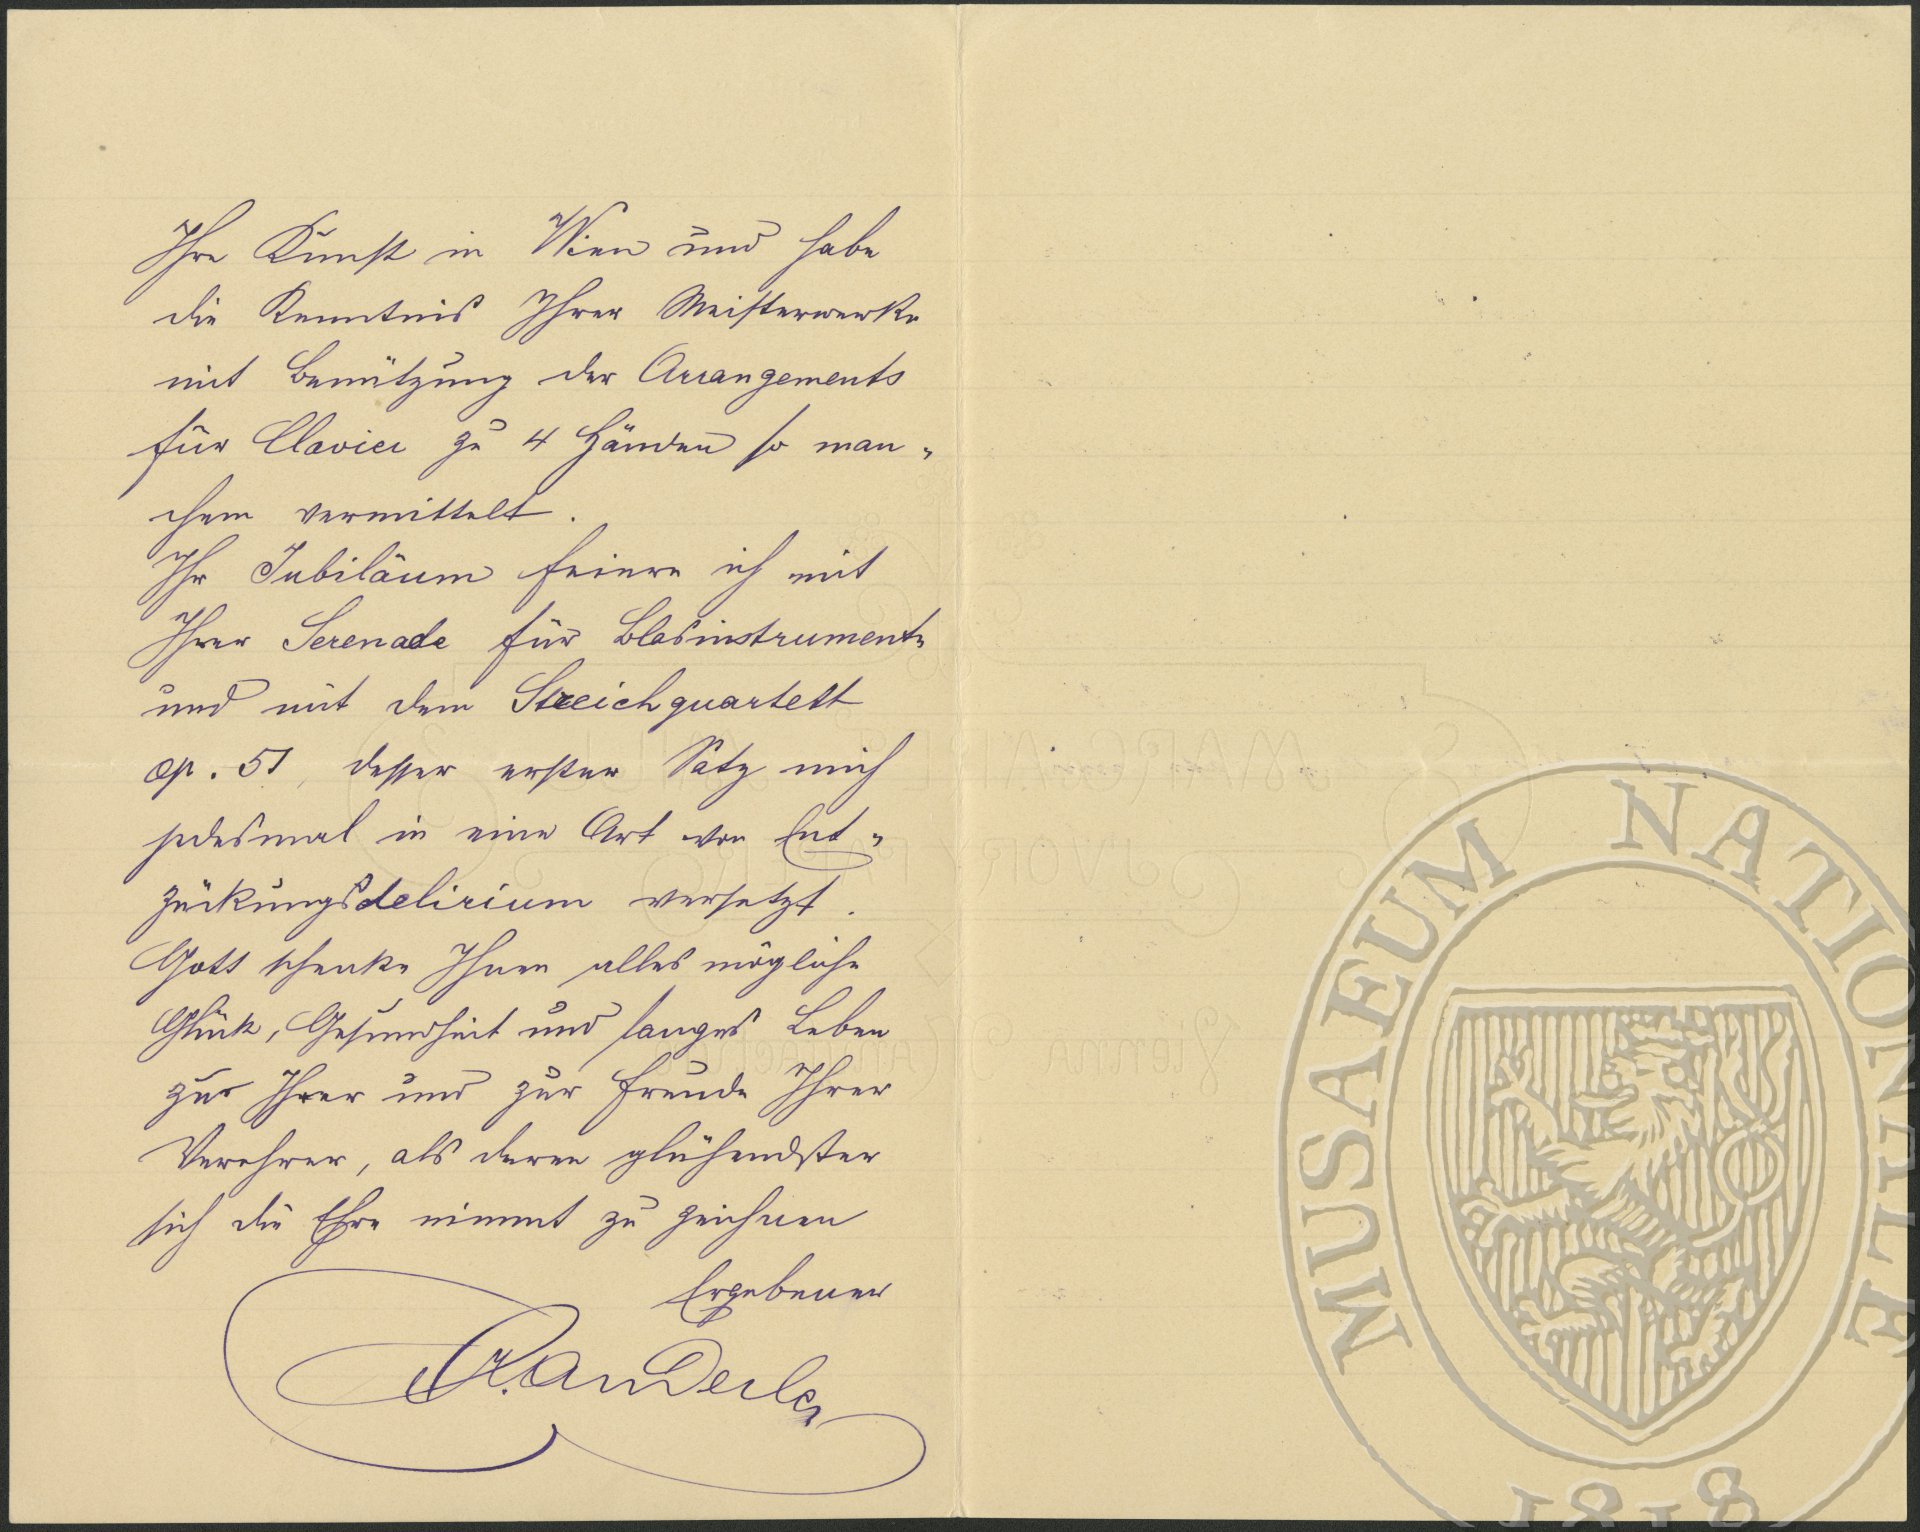 Ihre Kunst in Wien und habe
die Kenntnis Ihrer Meisterwerke
mit Benützung der Arrangements
für Clavier zu 4 Händen so man-
chem vermittelt.
Ihr Jubiläum feiere ich mit
Ihrer Serenade für Blasinstrumente
und mit dem Streichquartett
op. 51, desser erster Satz mich
jedesmal in eine Art von Ent-
zückungsdelirium versetzt.
Gott schenke Ihnen alles mögliche
Glück, Gesundheit und langes Leben
zur Ihrer und zur Freude Ihrer
Verehrer, als deren glühendster
sich die Ehre nimmt zu zeichnen
Ergebener
MUSAEUM NATIONALE
1818